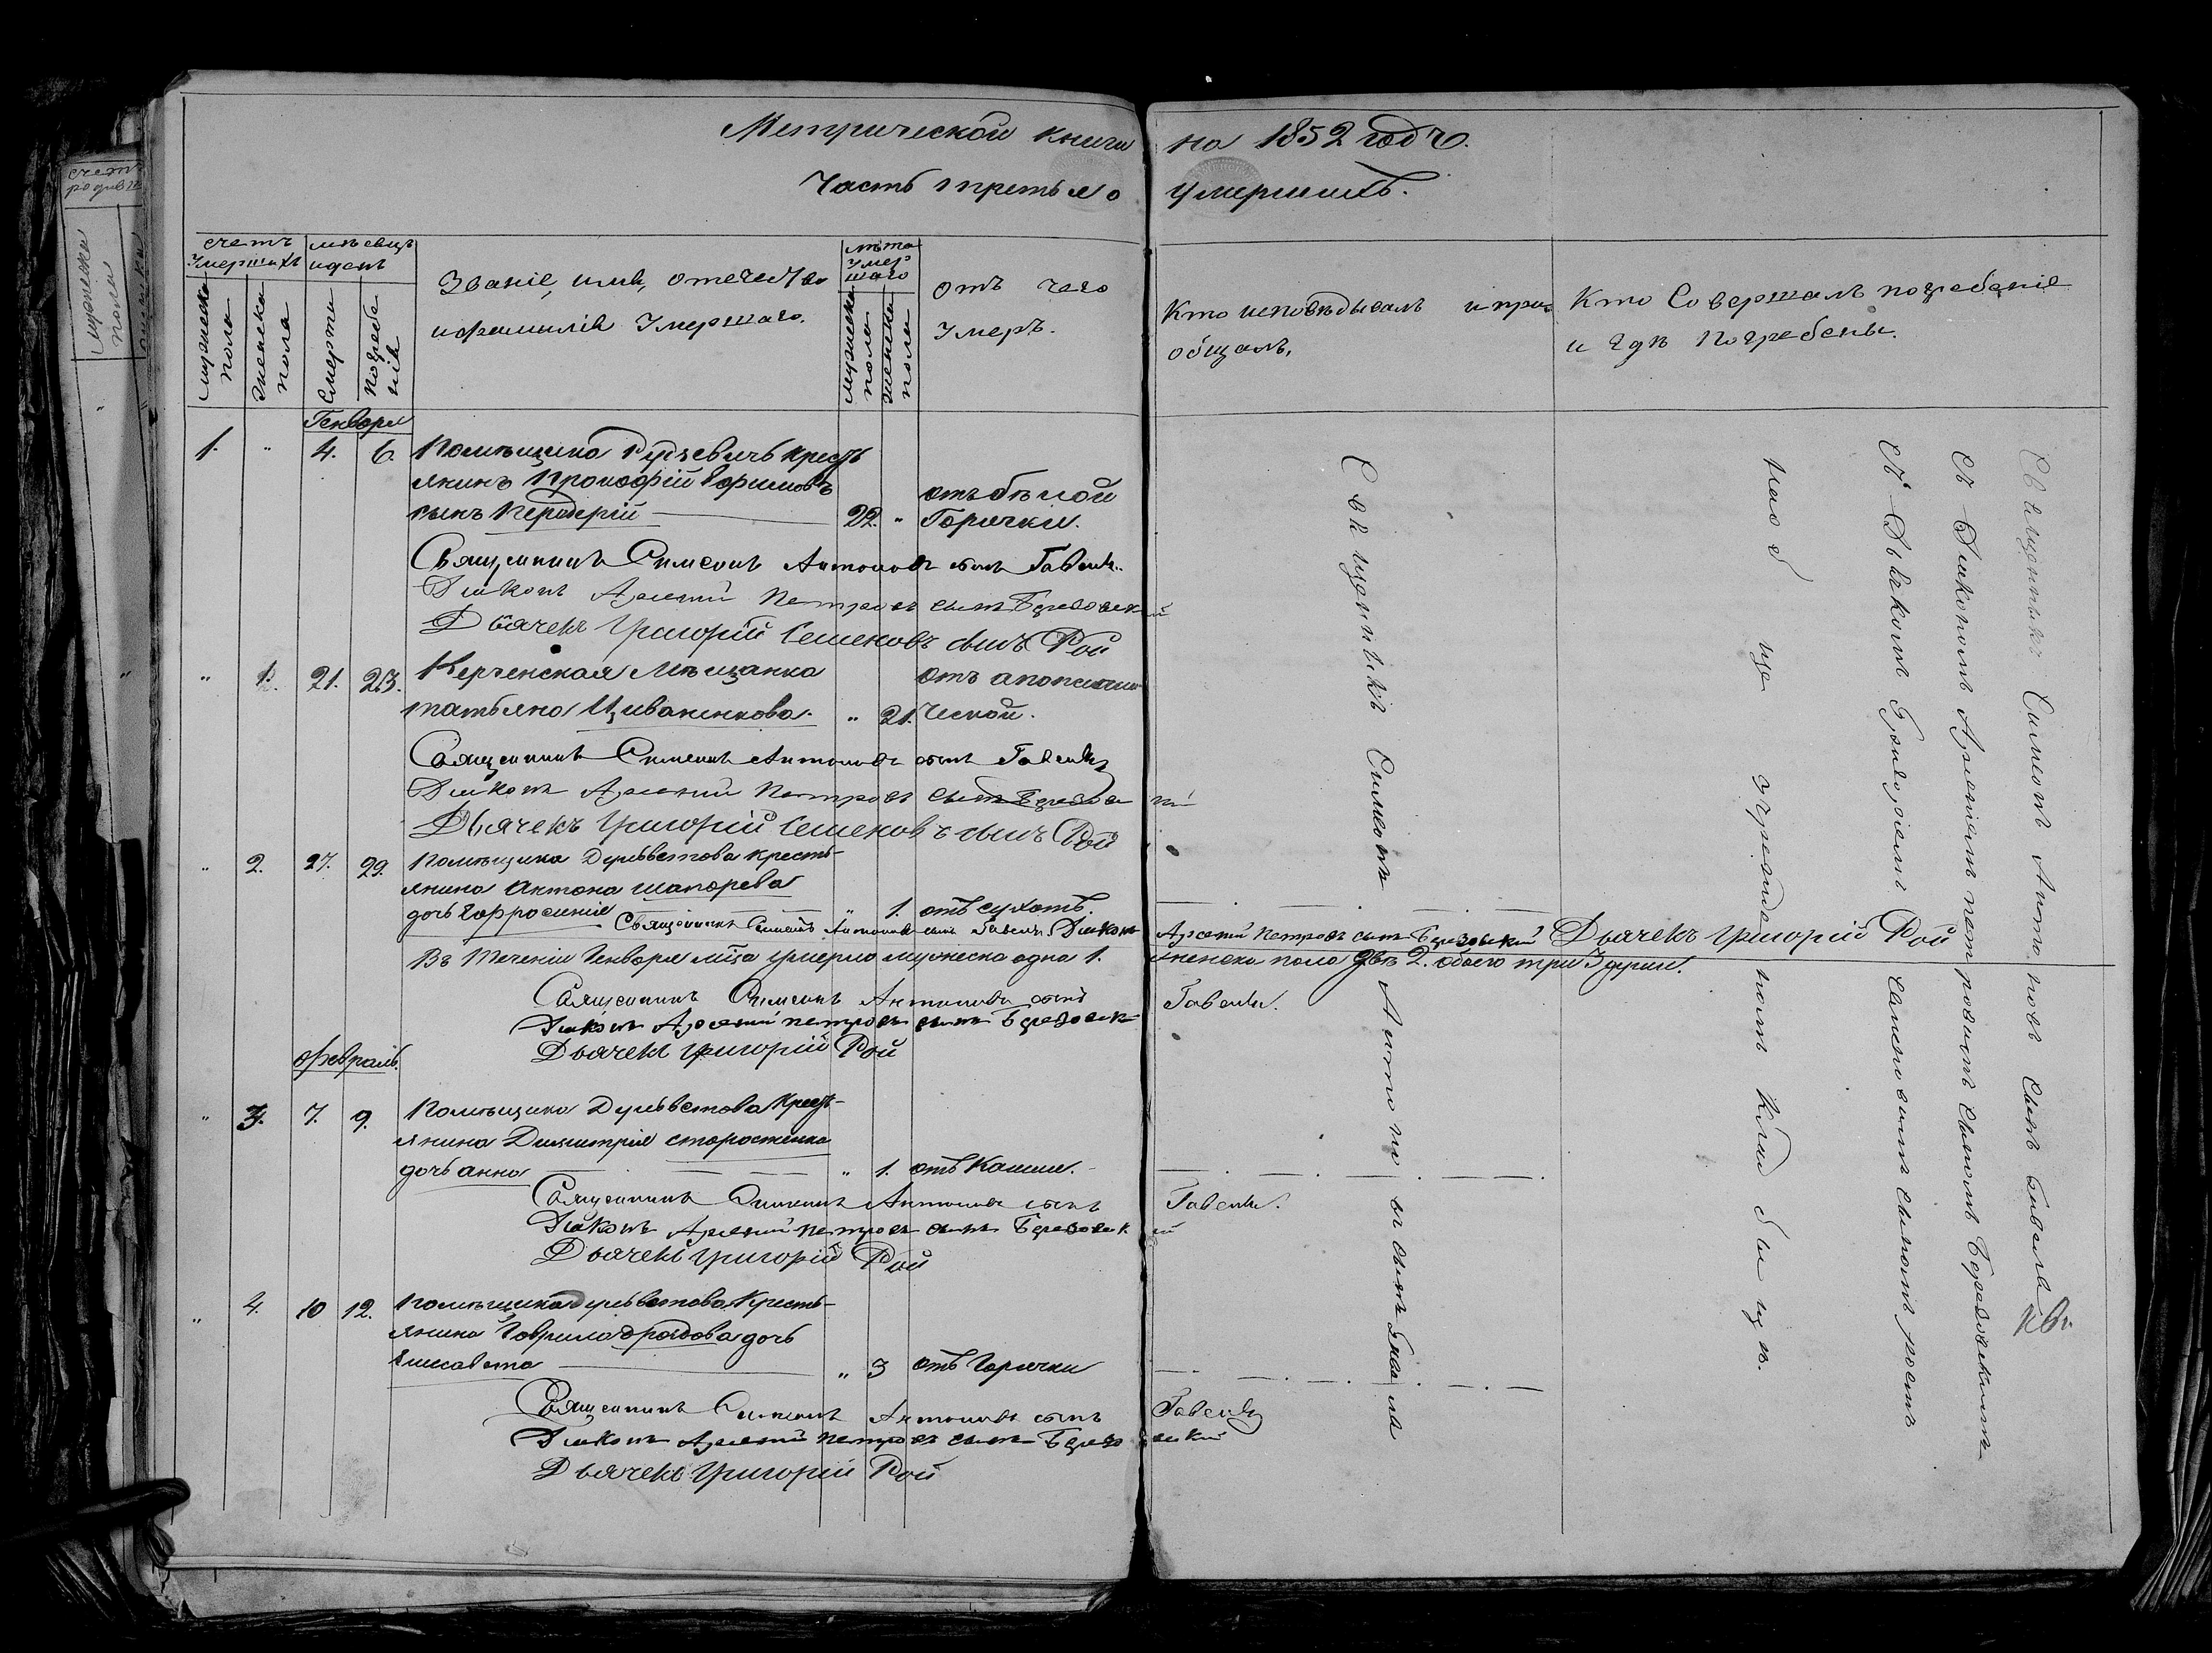 Метрической книги на 1852 годъ.
Часть третья о умершихъ.
счетъ умершихъ
мужеска пола
женска пола
мѣсяцъ и день
Смерти
погребенія
Званіе, имя, отечество
и фамилія Умершаго.
лѣта Умершаго
мужеска пола
женска пола
отъ чего
Умеръ.
Кто исповѣдывалъ и пріобщалъ,
Кто Совершалъ погребеніе
и гдѣ погребены.
Генваря
1. " 4. 6. Помѣщика крестьянинъ
Прокофій Ефимовъ
сынъ 22. " отъ бѣлой Горячки.
Священникъ Симеонъ Антоновъ сынъ
Діаконъ Арсеній Петровъ сынъ Березовскій
Дьячекъ Григорій Семеновъ сынъ Рой
" 1. 21. 23. Керченская Мѣщанка
татьяна Циваненкова. " 21. отъ апоплексической.
Священникъ Симеонъ Антоновъ сынъ
Діаконъ Арсеній Петровъ сынъ
Дьячекъ Григорій Семеновъ сынъ Рой
" 2. 27. 29. Помѣщика кресть-
янина Антона шапорева
дочь Ефросинія " 1. отъ сухотъ.
Священникъ Симеонъ Антоновъ сынъ Діаконъ Арсеній Петровъ сынъ Березовскій Дьячекъ Григорій Рой
Въ теченіи Генваря мца умерло мужеска одна 1. женска пола двѣ 2. обоего три 3 души.
Священникъ Симеонъ Антоновъ сынъ
Діаконъ Арсеній петровъ сынъ Березовск
Дьячекъ Григорій Рой
Февраль.
" 3. 7. 9. Помѣщика Крест-
янина Димитрія старостенка
дочь анна " 1. отъ Кашли.
Священникъ Симеонъ Антоновъ сынъ
Діаконъ Арсеній петровъ сынъ Березовскій
Дьячекъ Григорій Рой
" 4. 10 12. помѣщика Кресть-
янина Гаврила дроздова дочь
Елисавета " 3 отъ Горячки
Священникъ Симеонъ Антоновъ сынъ
Діаконъ Арсеній петровъ сынъ Березовскій
Дьячекъ Григорій Рой
Священникъ Симеонъ Антоновъ сынъ
Священникъ Симеонъ Антоновъ Сынъ
Съ Діакономъ Арсеніемъ петровымъ сыномъ Березовскимъ
съ Дьячкомъ Григоріемъ Семеновымъ сыномъ роемъ
на общ учрежденномъ Кладбищѣ.